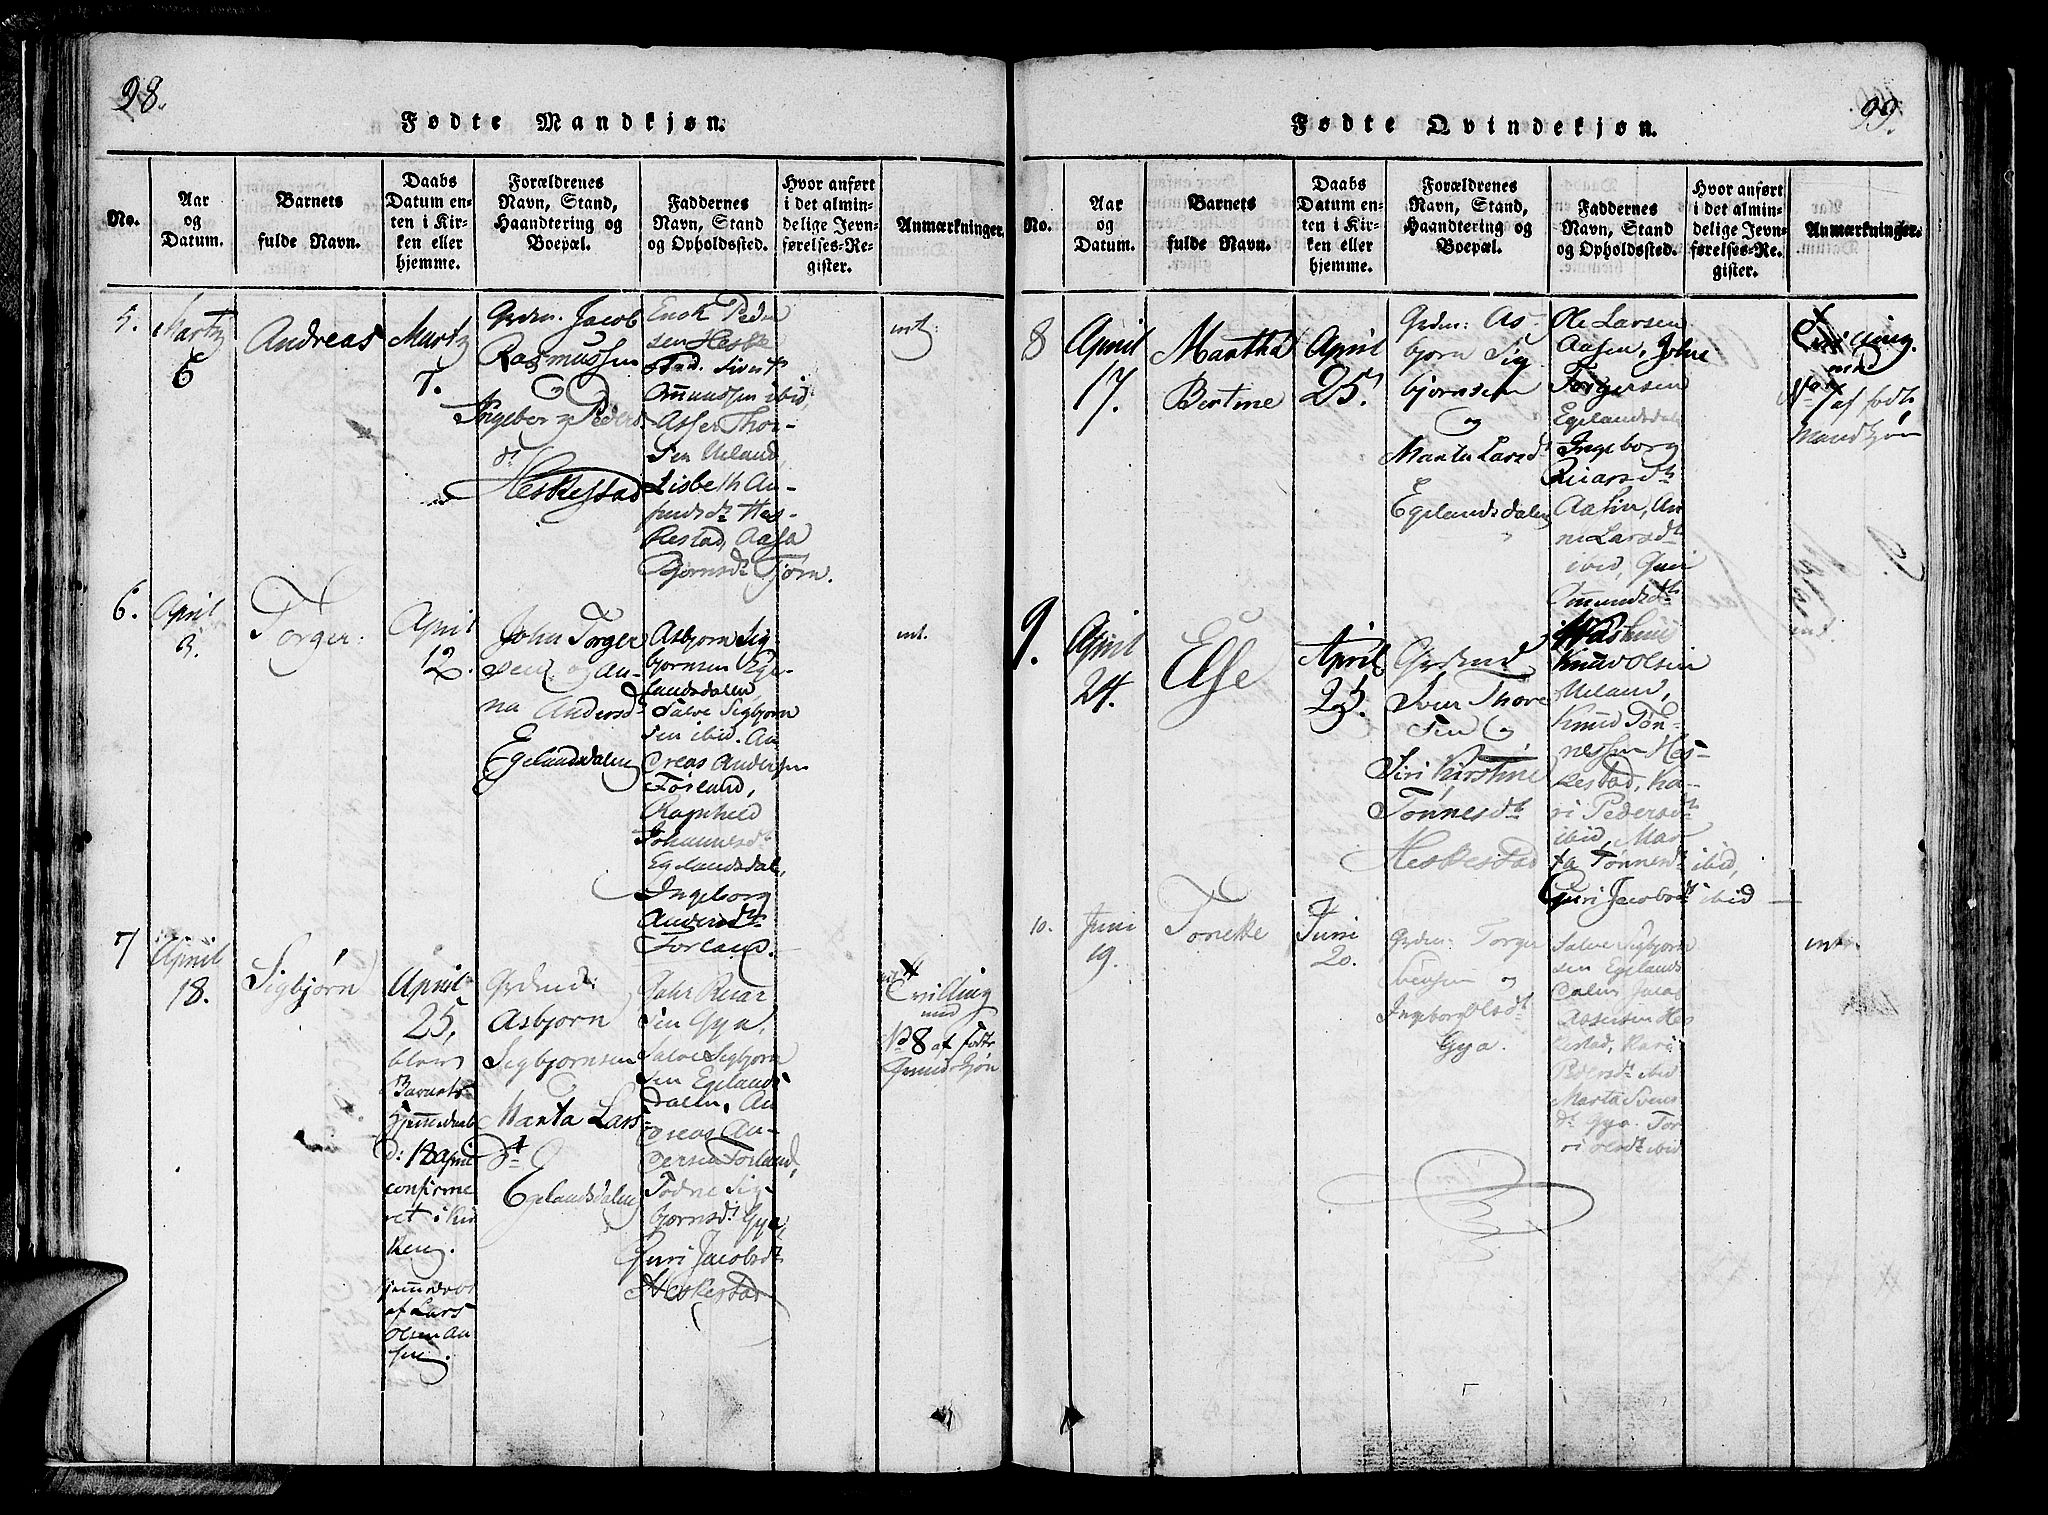 98.
Fødte Mandkjøn.
No.
Aar
og
Datum.
Barnets
fulde Navn.
Daabs
Datum en-
ten i Kir-
ken eller
hjemme.
Forældrenes
Navn, Stand,
Haandtering og
Boepæl.
Faddernes
Navn, Stand
og Opholdssted.
Hvor anført
i det almin-
delige Jevn-
førelses-Re-
gister.
Anmærkninger.
5.
Martz
6
Andreas
Martz
7.
Grdm. Jacob
Rasmussen
og
Ingeborg Peders
dt
Heskestad
Enok Peder
sen Heske
stad. Sivert
Omundsen ibid,
Asser Thor-
sen Ueland,
Lisbeth An-
findsdt Hes-
kestad, Aasa
Bjørnsdt Tjørn.
int:
6.
April
3.
Torger:
April
12.
John Torger
sen og An-
na Andersdt
Egelandsdalen
Asbjorn Sig-
bjornsen Ege-
landsdalen,
Salve Sigbjorn
sen ibid. An
dreas Andersen
Førland,
Ragnhild
Johannesdt
Egelandsdal,
Ingeborg
Andersdt
Førland.
int.
7
April
18.
Sigbjørn
April
25,
blev
Barnet
hjemmedøbt
d: 18 April
confirme
ret i Kir
ken.
hjemmedøbt
af Lars
Olsen Aa
sen.
Grdmd:
Asbjorn
Sigbjornsen
og
Marta Lars
dt
Egelandsdalen
Johr Reiar
sen Gya,
Salve Sigbjorn
sen Egelands
dalen, An
dreas An-
dersen Førland,
Todne Sig-
bjørnsdt Gya,
Guri Jacobsdt
Heskestad
Tvilling
med
No 8 af fødte
Qvindekjøn
99.
Fødte Qvindekjøn.
No.
Aar
og
Datum.
Barnets
fulde Navn.
Daabs
Datum en-
ten i Kir-
ken eller
hjemme.
Forældrenes
Navn, Stand,
Haandtering og
Boepæl.
Faddernes
Navn, Stand
og Opholdssted.
Hvor anført
i det almin-
delige Jevn-
førelses-Re-
gister.
Anmærkninger.
8
April
17.
Martha
Bertine
April
25.
Grdm: As-
bjorn Sig
bjornsen
og
Marta Larsdt
Egelandsdalen
Ole Larsen
Aasen, John
Torgersen
Egelandsdal
Ingeborg
Reiarsdt
Aasen, An
ne Larsdt
ibid, Guri
Omundsdt
Knud Olsen
Tvilling
med
No 7 af fødte
Mandkjøn
9.
April
24.
Else
April
25.
Grdmd
Sven Thore
sen og
Siri Kirstine
Tønnesdt
Heskestad
Ueland,
Knud Tøn-
nessen Hes-
kestad, Ka-
ri Pedersdt
ibid, Mar
ta Tønnesdt ibid,
Guri Jacobsdt ibid
10.
Juni
19.
Tonette
Juni
20.
Grdm: Torger
Svensen og
Ingeborg Olsdt
Gya.
Salve Sigbjorn
sen Egelands
dalen, Jacob
Assersen Hes
kestad, Kari
Pedersdt ibid
Marta Svens
dt Gya. Tor
ri Olsdt ibid
int.